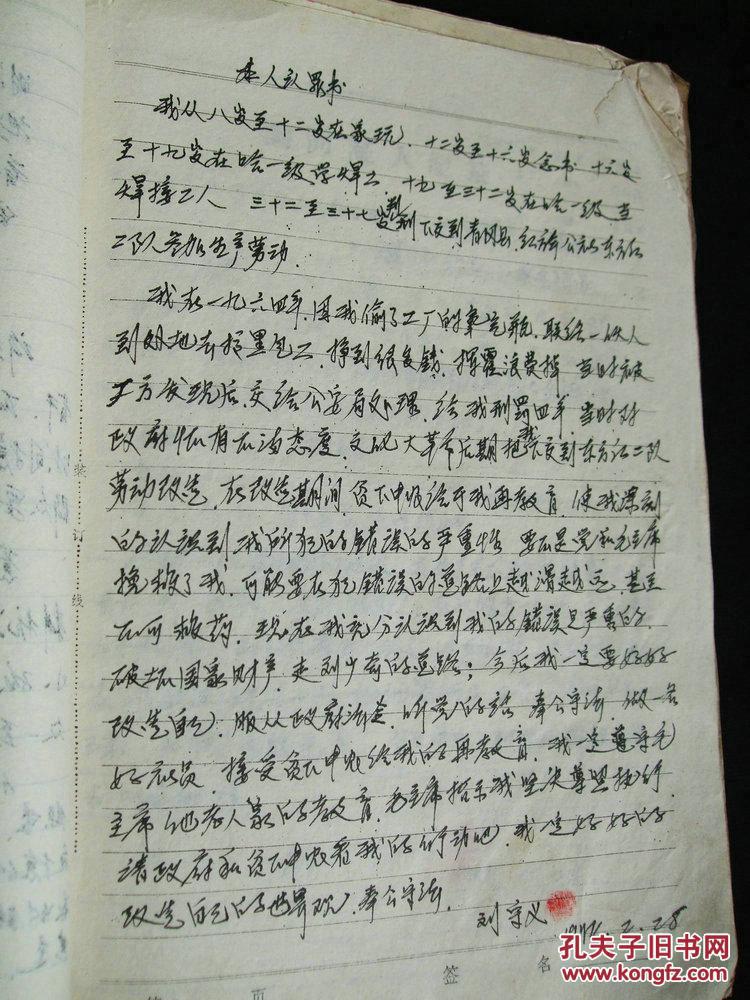 本人认罪书
我从八岁至十二岁在家玩，十二岁至十六岁念书 十六岁
至十九岁在哈一级学焊工，十九至三十二岁在哈一级当
焊接工人 三十二至三十七岁 下交到 县 红旗公社东方红
二队参加生产劳动．
我在一九六四年，因我偷了工厂的 瓶，联络一伙人
到外地去搞黑包工，挣到很多钱，挥霍浪费掉 当时被
工厂发现后，交给公安局处理，给我刑罚四年，当时对
政府怀有不满态度，文化大革命后期把我下交到东方红二队
劳动改造，在改造期间，贫下中农给于我再教育 使我深刻
的认识到 我所犯的错误的严重性 要不是党和毛主席
挽救了我，可能要在犯错误的道路上越滑越远，甚至
不可救药，现在我充分认识到我的错误是严重的，
破坏国家财产，走到 的道路；今后我一定要好好
改造自己，服从政府法令，听党的话 奉公守法，做一名
好社员，接受贫下中农给我的再教育，我一定尊守毛
主席他老人家的教育，毛主席指示我坚决尊照执行，
请政府和贫下中农看我的行动吧，我一定好好的
改造自己的世界观，奉公守法．
刘守义 2.28
装
订
线
页
签
名
孔夫子旧书网
www.kongfz.com